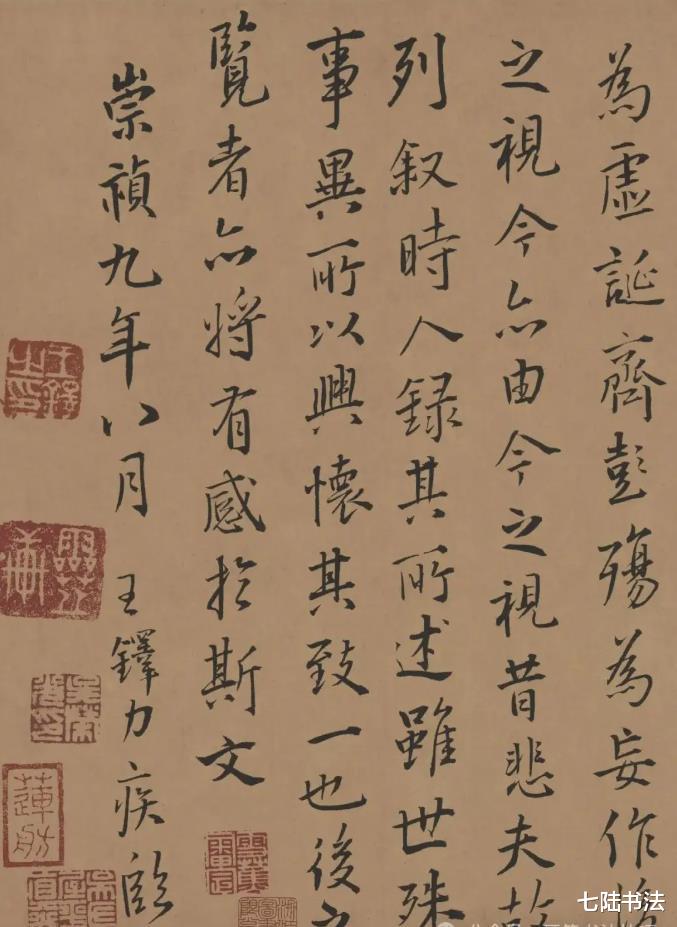 為虛誕齊彭殤為妄作後
之視今亦由今之視昔悲夫故
列叙時人録其所述雖世殊
事異所以興懷其致一也後之
覽者亦將有感於斯文
崇禎九年八月 王鐸力疾臨
王鐸之印
蓮舫
七陆书法